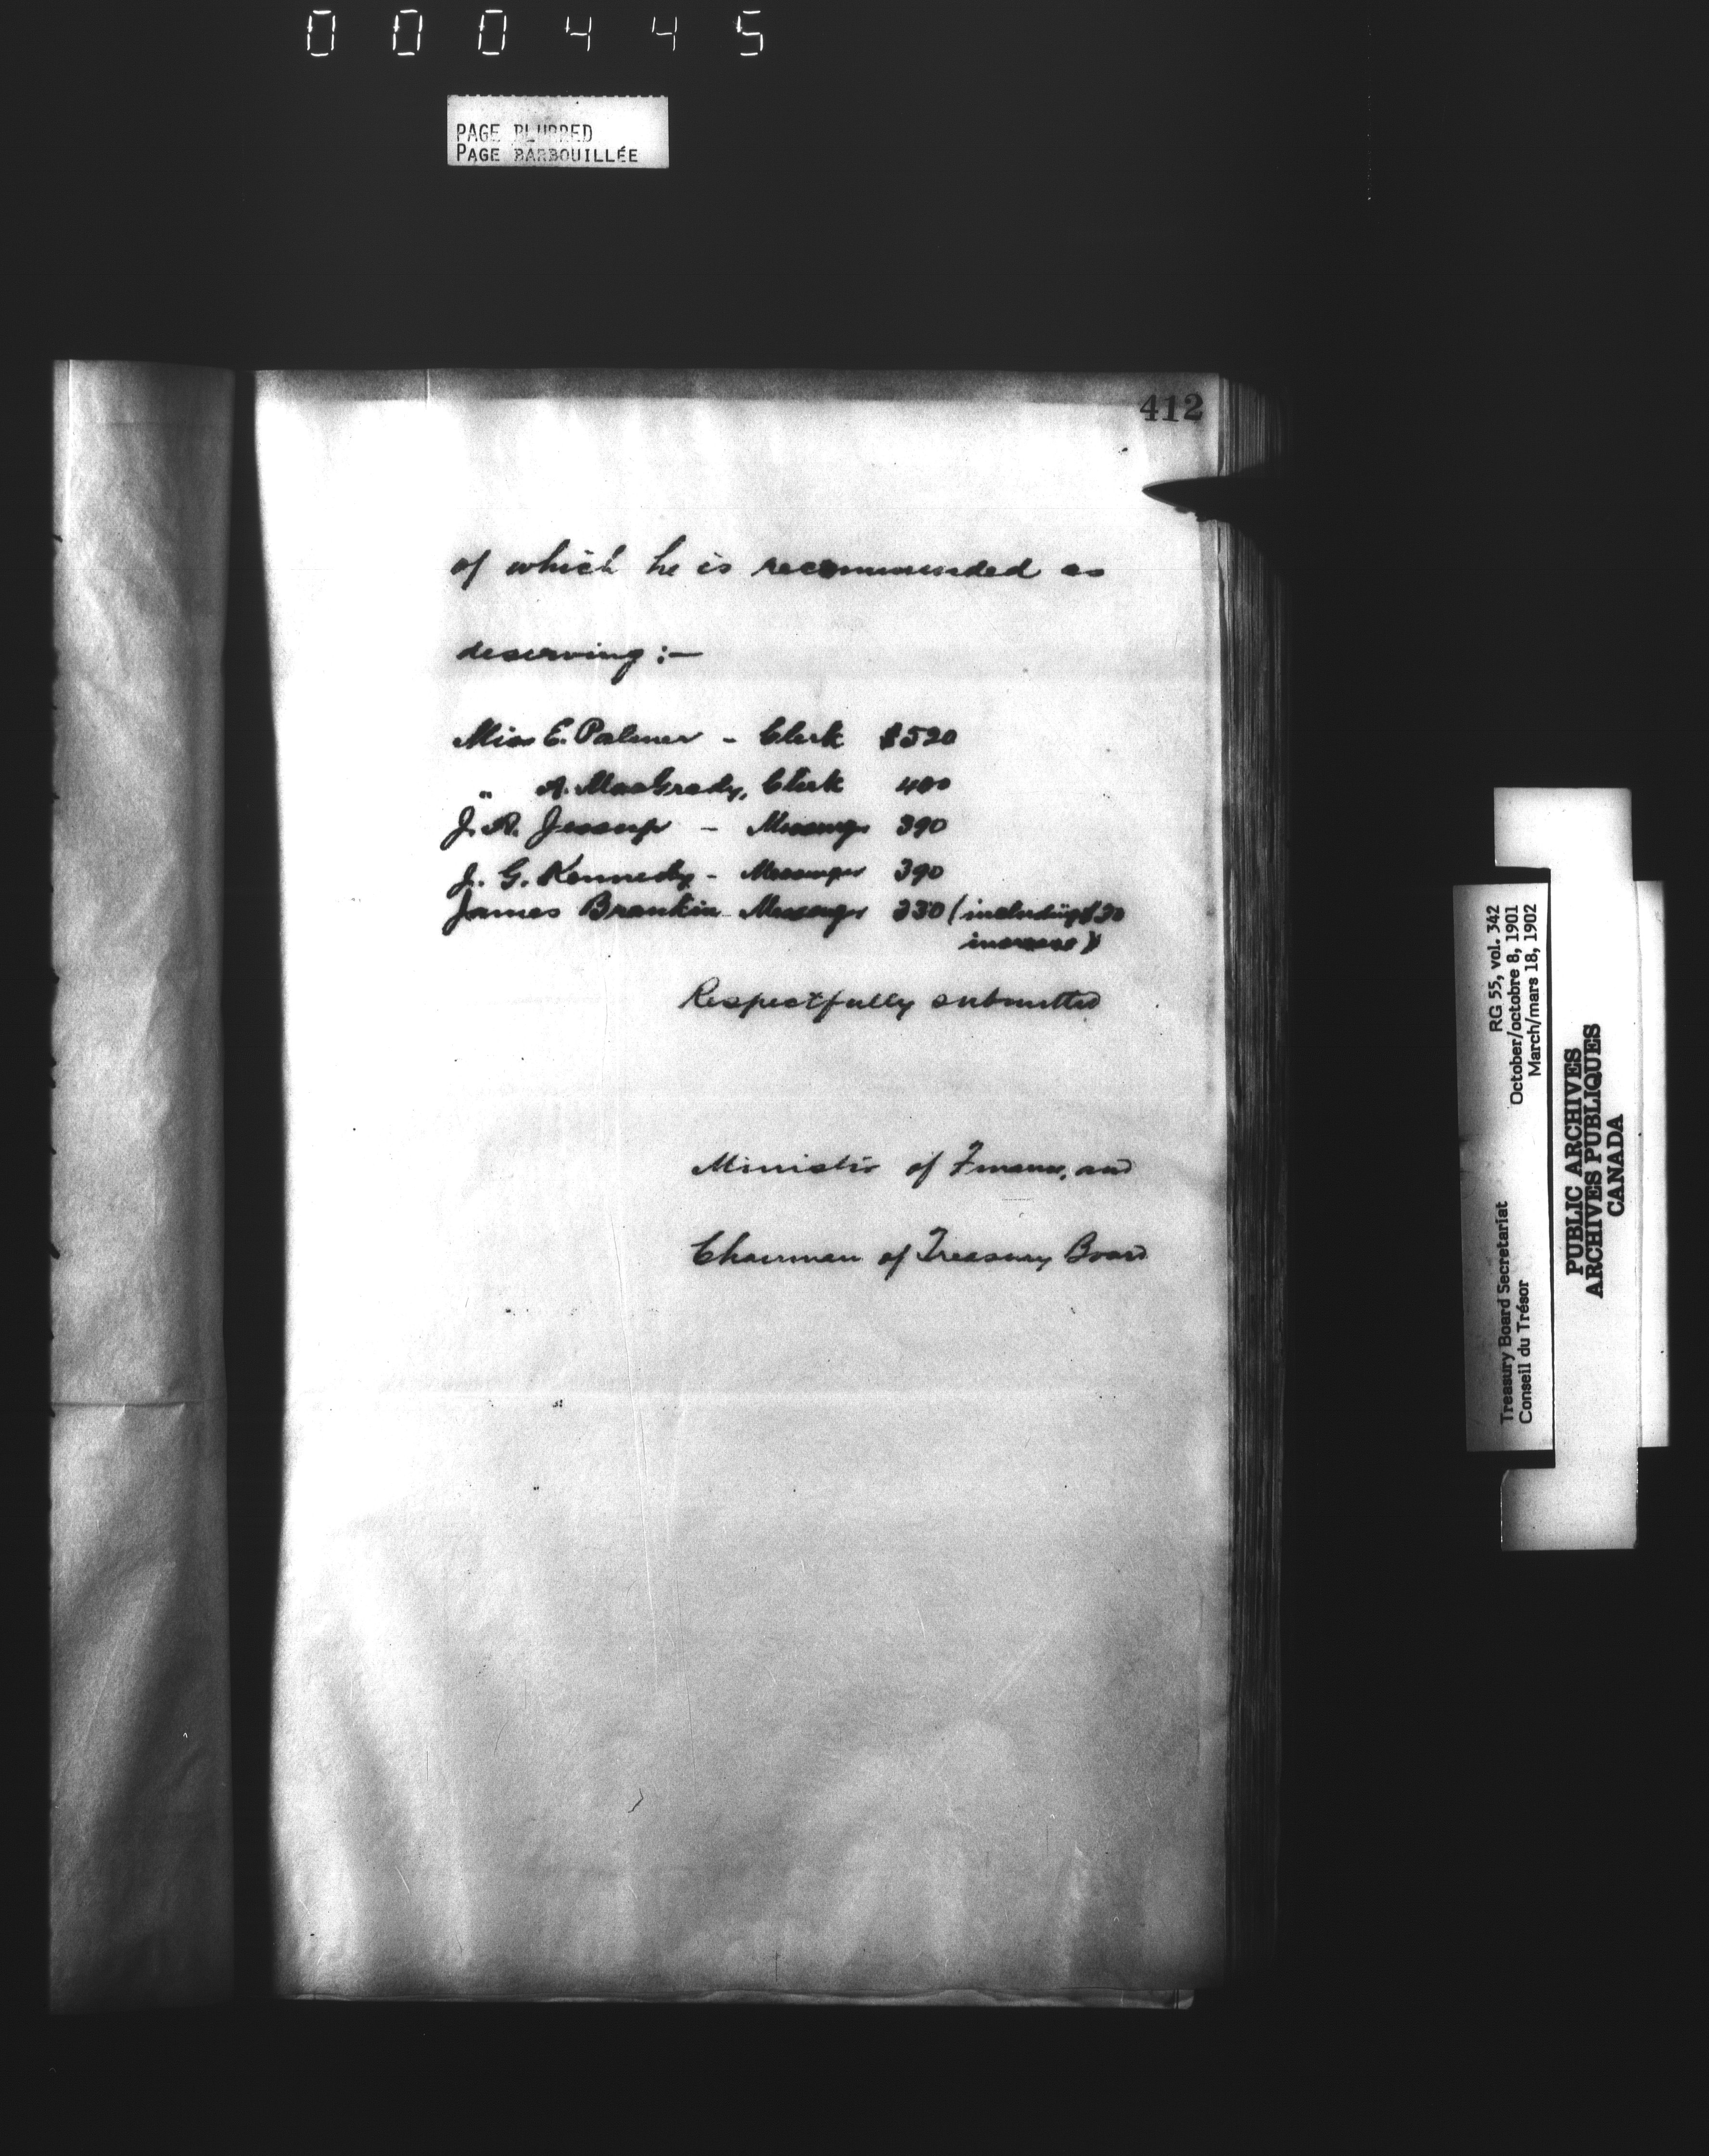 000445
PAGE BLURRED
PAGE BARBOUILLÉE
412
of which he is recommended as
deserving :—
Miss E. Palmer - Clerk $520
" A. MacGrady, Clerk 400
J. R. Jessup - Messenger 390
J. G. Kennedy - Messenger 390
James Brankin - Messenger 330 (including $30
increase)
Respectfully submitted
Minister of Finance, and
Chairman of Treasury Board
Treasury Board Secretariat RG 55, vol. 342
Conseil du Trésor October/octobre 8, 1901
March/mars 18, 1902
PUBLIC ARCHIVES
ARCHIVES PUBLIQUES
CANADA